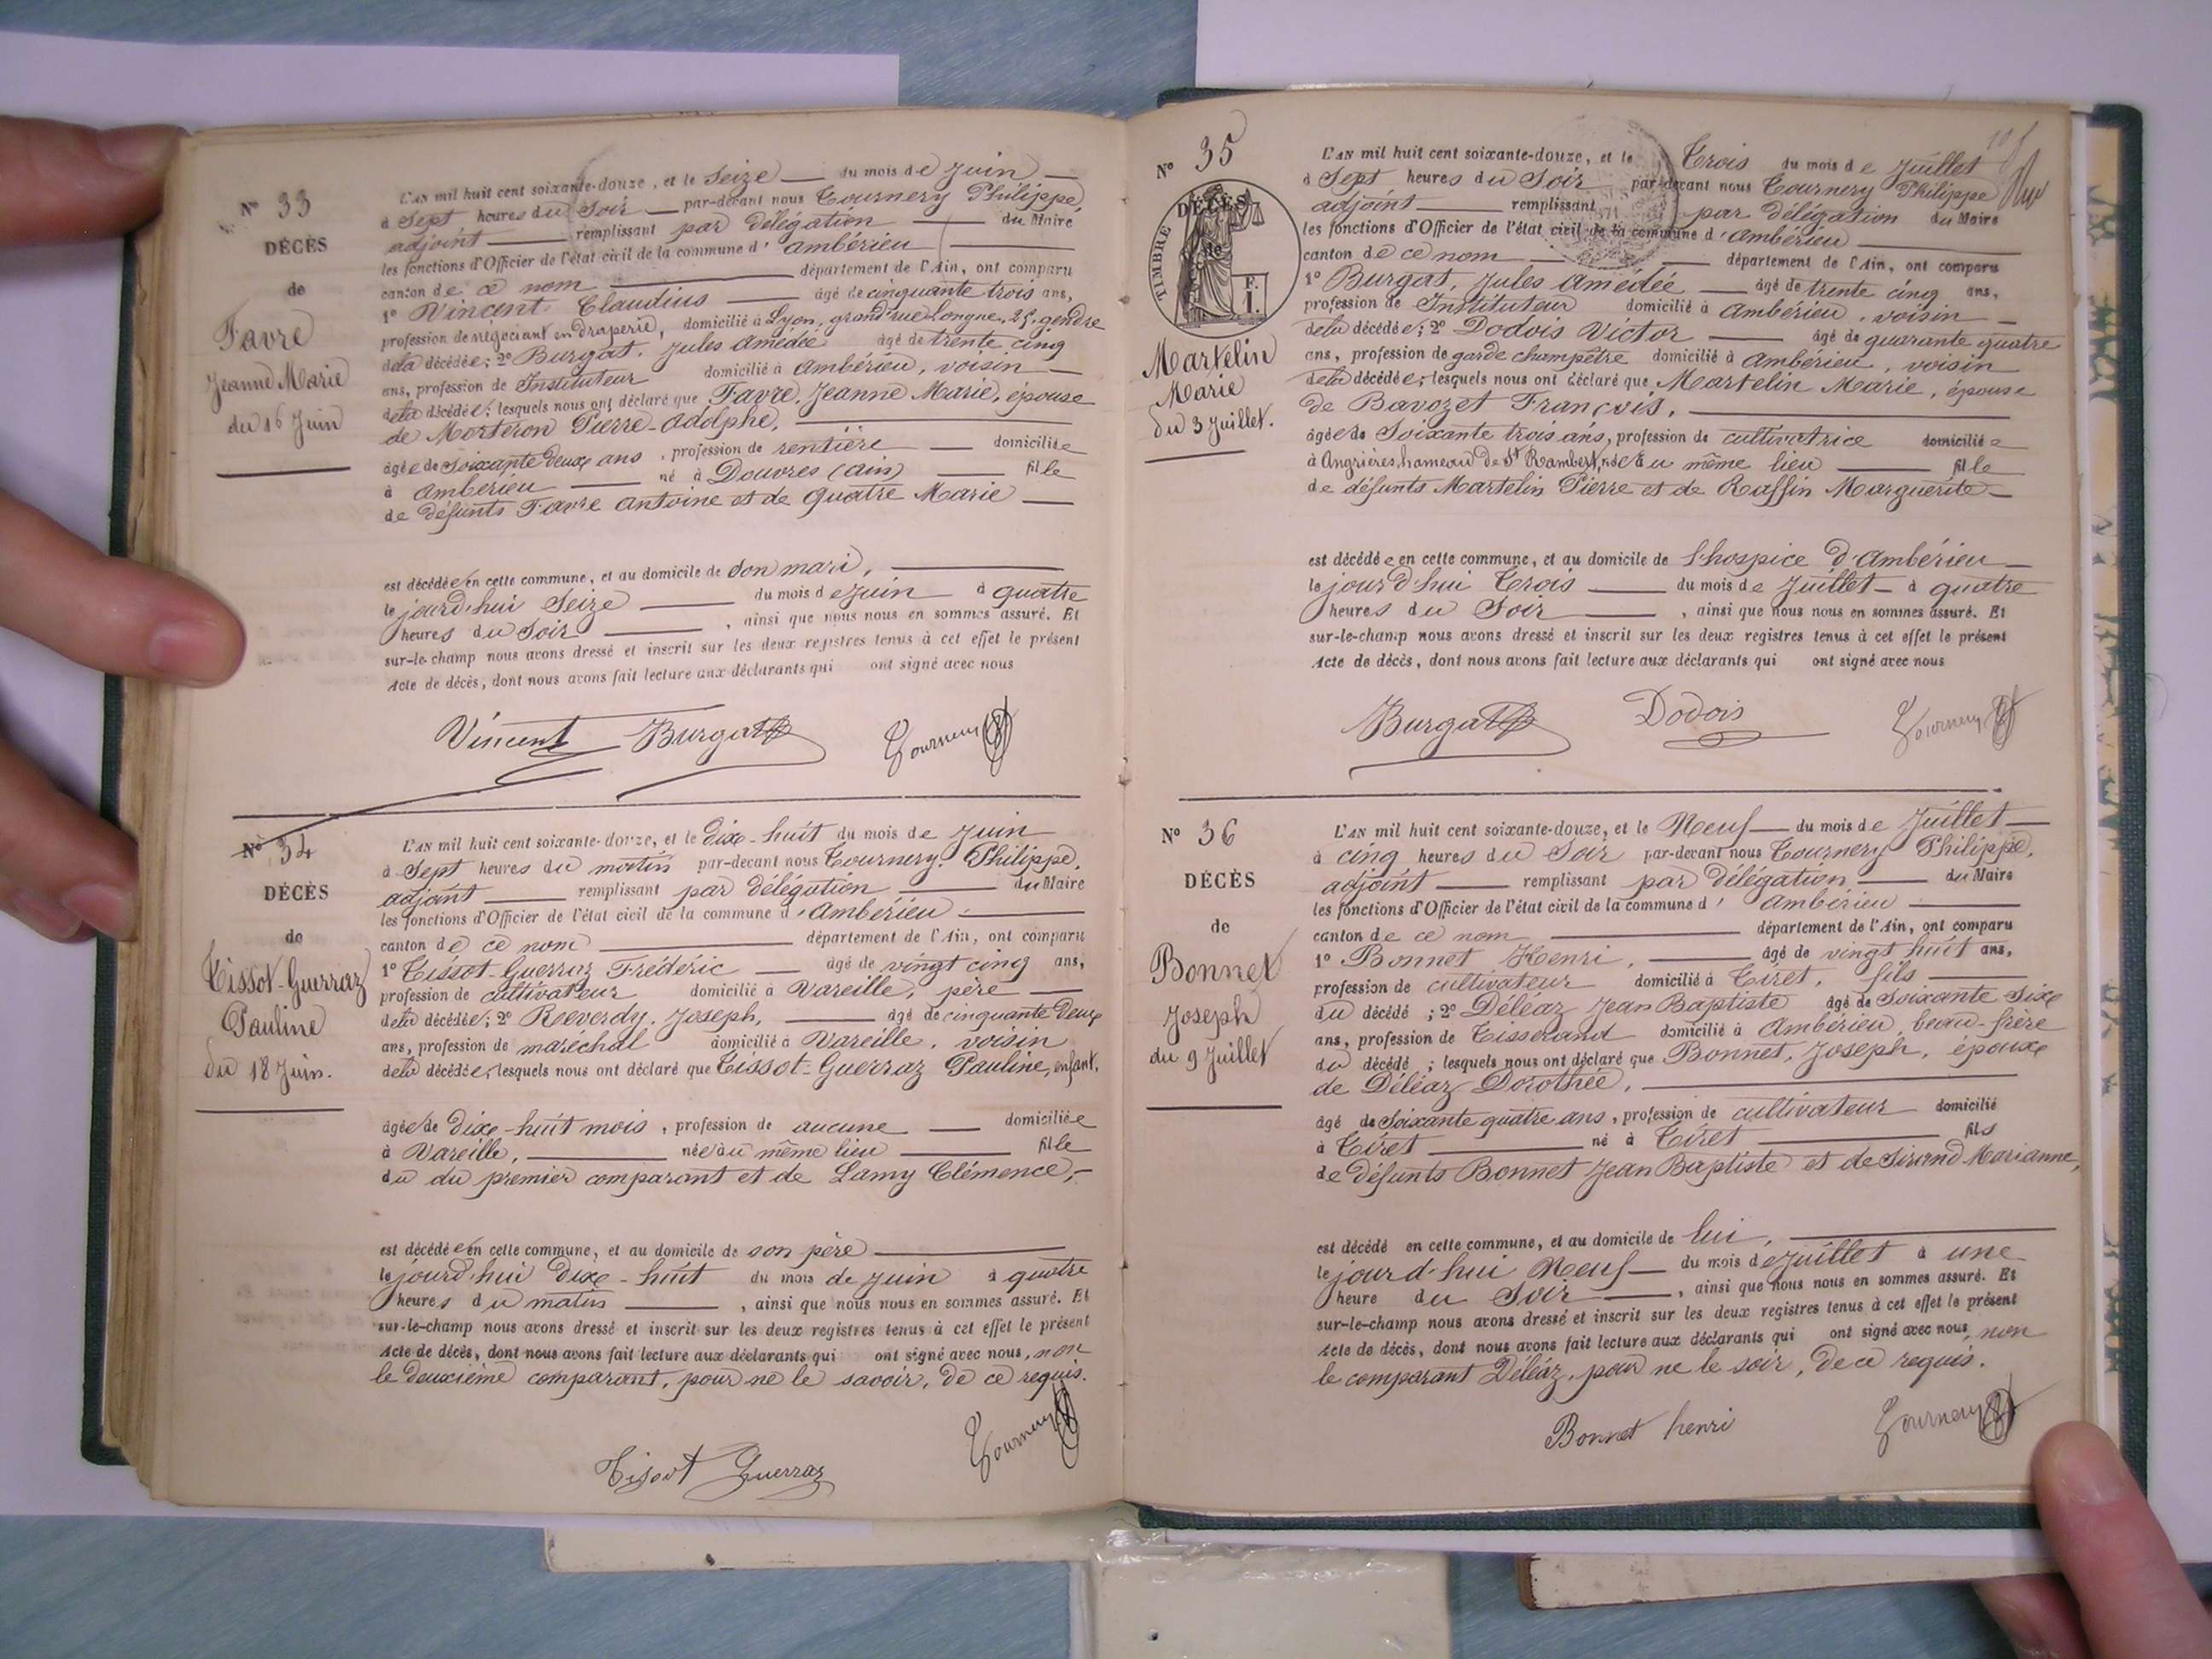 N° 33
DÉCÈS
de
Favre
Jeanne Marie
du 16 Juin
L'AN mil huit cent soixante-douze, et le Seize du mois de Juin
à Sept heures du Soir par-devant nous Tournery Philippe,
adjoint remplissant par délégation du Maire
les fonctions d'Officier de l'état civil de la commune d'Ambérieu
canton de ce nom département de l'Ain, ont comparu
1° Vincent Claudius âgé de cinquante trois ans,
profession de négociant en draperie, domicilié à Lyon, grand'rue Longue, 25, gendre
de la décédée; 2° Burgat, Jules Amédée âgé de trente cinq
ans, profession de Instituteur domicilié à Ambérieu, voisin
de la décédée; lesquels nous ont déclaré que Favre, Jeanne Marie, épouse
de Morteron Pierre-Adolphe,
âgée de Soixante deux ans, profession de rentière domiciliée
à Ambérieu né à Douvres (Ain) fille
de défunts Favre Antoine et de Quatre Marie
est décédée en cette commune, et au domicile de son mari,
le jourd'hui Seize du mois de Juin à quatre
heures du Soir, ainsi que nous nous en sommes assuré. Et
sur-le-champ nous avons dressé et inscrit sur les deux registres tenus à cet effet le présent
Acte de décès, dont nous avons fait lecture aux déclarants qui ont signé avec nous
Vincent Burgat Tournery
N° 34
DÉCÈS
de
Tissot-Guerraz
Pauline
du 18 Juin.
L'AN mil huit cent soixante-douze, et le dixe-huit du mois de Juin
à Sept heures du matin par-devant nous Tournery Philippe,
adjoint remplissant par délégation du Maire
les fonctions d'Officier de l'état civil de la commune d'Ambérieu
canton de ce nom département de l'Ain, ont comparu
1° Tissot-Guerraz Frédéric âgé de vingt cinq ans,
profession de cultivateur domicilié à Vareille, père
de la décédée; 2° Reverdy, Joseph, âgé de cinquante deux
ans, profession de maréchal domicilié à Vareille, voisin
de la décédée, lesquels nous ont déclaré que Tissot-Guerraz Pauline, enfant,
âgée de dixe-huit mois, profession de aucune domiciliée
à Vareille, née au même lieu fille
du du premier comparant et de Lamy Clémence,
est décédée en cette commune, et au domicile de son père
le jourd'hui dixe-huit du mois de Juin à quatre
heures du matin, ainsi que nous nous en sommes assuré. Et
sur-le-champ nous avons dressé et inscrit sur les deux registres tenus à cet effet le présent
Acte de décès, dont nous avons fait lecture aux déclarants qui ont signé avec nous, non
le deuxième comparant, pour ne le savoir, de ce requis.
Tissot Guerraz Tournery
N° 35
DÉCÈS
de
TIMBRE
F.
1.
Martelin
Marie
du 3 Juillet.
L'AN mil huit cent soixante-douze, et le Trois du mois de Juillet
à Sept heures du Soir par-devant nous Tournery Philippe
adjoint remplissant par délégation du Maire
les fonctions d'Officier de l'état civil de la commune d'Ambérieu
canton de ce nom département de l'Ain, ont comparu
1° Burgat, Jules Amédée âgé de trente cinq ans,
profession de Instituteur domicilié à Ambérieu, voisin
de la décédée; 2° Dodois Victor âgé de quarante quatre
ans, profession de garde champêtre domicilié à Ambérieu, voisin
de la décédée; lesquels nous ont déclaré que Martelin Marie, épouse
de Bavozet François,
âgée de Soixante trois ans, profession de cultivatrice domiciliée
à Angrières, hameau de St Rambert, née du même lieu fille
de défunts Martelin Pierre et de Raffin Marguerite
est décédée en cette commune, et au domicile de l'hospice d'Ambérieu
le jourd'hui Trois du mois de Juillet à quatre
heures du Soir, ainsi que nous nous en sommes assuré. Et
sur-le-champ nous avons dressé et inscrit sur les deux registres tenus à cet effet le présent
Acte de décès, dont nous avons fait lecture aux déclarants qui ont signé avec nous
Burgat Dodois Tournery
N° 36
DÉCÈS
de
Bonnet
Joseph
du 9 Juillet
L'AN mil huit cent soixante-douze, et le Neuf du mois de Juillet
à cinq heures du Soir par-devant nous Tournery Philippe,
adjoint remplissant par délégation du Maire
les fonctions d'Officier de l'état civil de la commune d'Ambérieu
canton de ce nom département de l'Ain, ont comparu
1° Bonnet Henri, âgé de vingt huit ans,
profession de cultivateur domicilié à Tiret, fils
du décédé; 2° Déléaz Jean Baptiste âgé de Soixante Sixe
ans, profession de Tisserand domicilié à Ambérieu, beau-frère
du décédé; lesquels nous ont déclaré que Bonnet, Joseph, époux
de Déléaz Dorothée,
âgé de Soixante quatre ans, profession de cultivateur domicilié
à Tiret né à Tiret fils
de défunts Bonnet Jean Baptiste et de Sirand Marianne,
est décédé en cette commune, et au domicile de lui,
le jourd'hui Neuf du mois de Juillet à une
heure du Soir, ainsi que nous nous en sommes assuré. Et
sur-le-champ nous avons dressé et inscrit sur les deux registres tenus à cet effet le présent
Acte de décès, dont nous avons fait lecture aux déclarants qui ont signé avec nous, non
le comparant Déléaz, pour ne le soir, de ce requis.
Bonnet henri Tournery